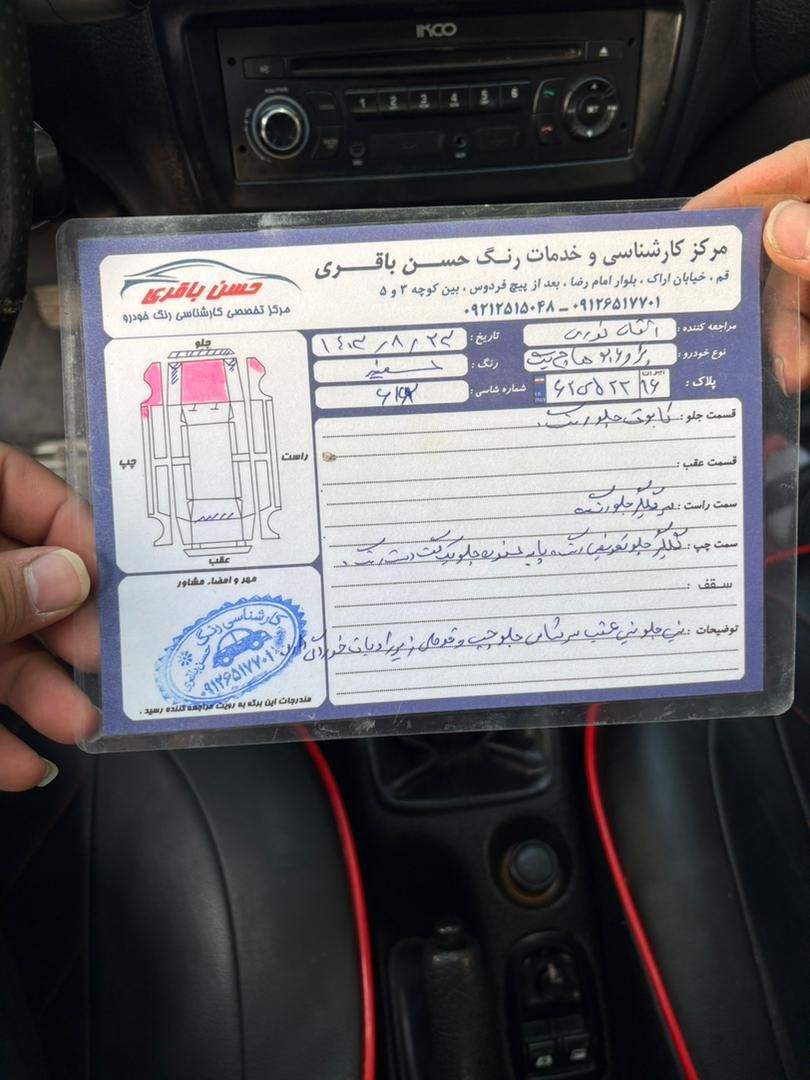 IKCO
1 2 3 4 5 6
مرکز کارشناسی و خدمات رنگ حسن باقری
قم ، خیابان اراک ، بلوار امام رضا ، بعد از پیچ فردوس ، بین کوچه ۳ و ۵
۰۹۱۲۶۵۱۷۷۰۱ - ۰۹۲۱۲۵۱۵۰۴۸
حسن باقری
مرکز تخصصی کارشناسی رنگ خودرو
مراجعه کننده : آقای نوری
تاریخ : ۱۴۰۳/۸/۲۳
نوع خودرو : پژو ۲۰۶ هاچ بک
رنگ : سفید
پلاک : ایران ۹۶
شماره شاسی :
جلو
چپ
راست
عقب
قسمت جلو : کاپوت جلو رنگ .
قسمت عقب :
سمت راست : سر گلگیر جلو رنگ
سمت چپ : گلگیر جلو تعویض رنگ
سقف :
توضیحات : سینی جلو سینی عقب سر شاسی جلو چپ و
مهر و امضاء مشاور
کارشناسی رنگ
۰۹۱۲۶۵۱۷۷۰۱
مندرجات این برگه به رویت مراجعه کننده رسید .